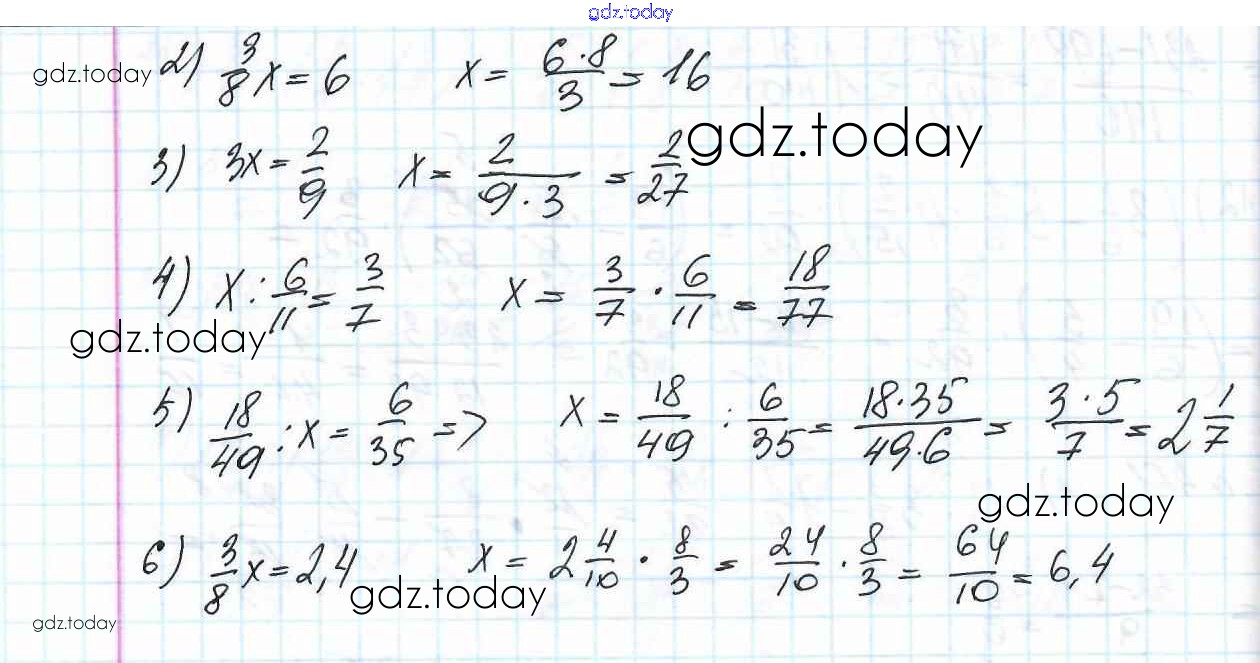 gdz.today
gdz.today
2) 3/8 x = 6 x = 6·8/3 = 16
gdz.today
3) 3x = 2/9 x = 2/9·3 = 2/27
4) x : 6/11 = 3/7 x = 3/7 · 6/11 = 18/77
gdz.today
5) 18/49 : x = 6/35 => x = 18/49 : 6/35 = 18·35/49·6 = 3·5/7 = 2 1/7
gdz.today
6) 3/8 x = 2,4 x = 2 4/10 · 8/3 = 24/10 · 8/3 = 64/10 = 6,4
gdz.today
gdz.today